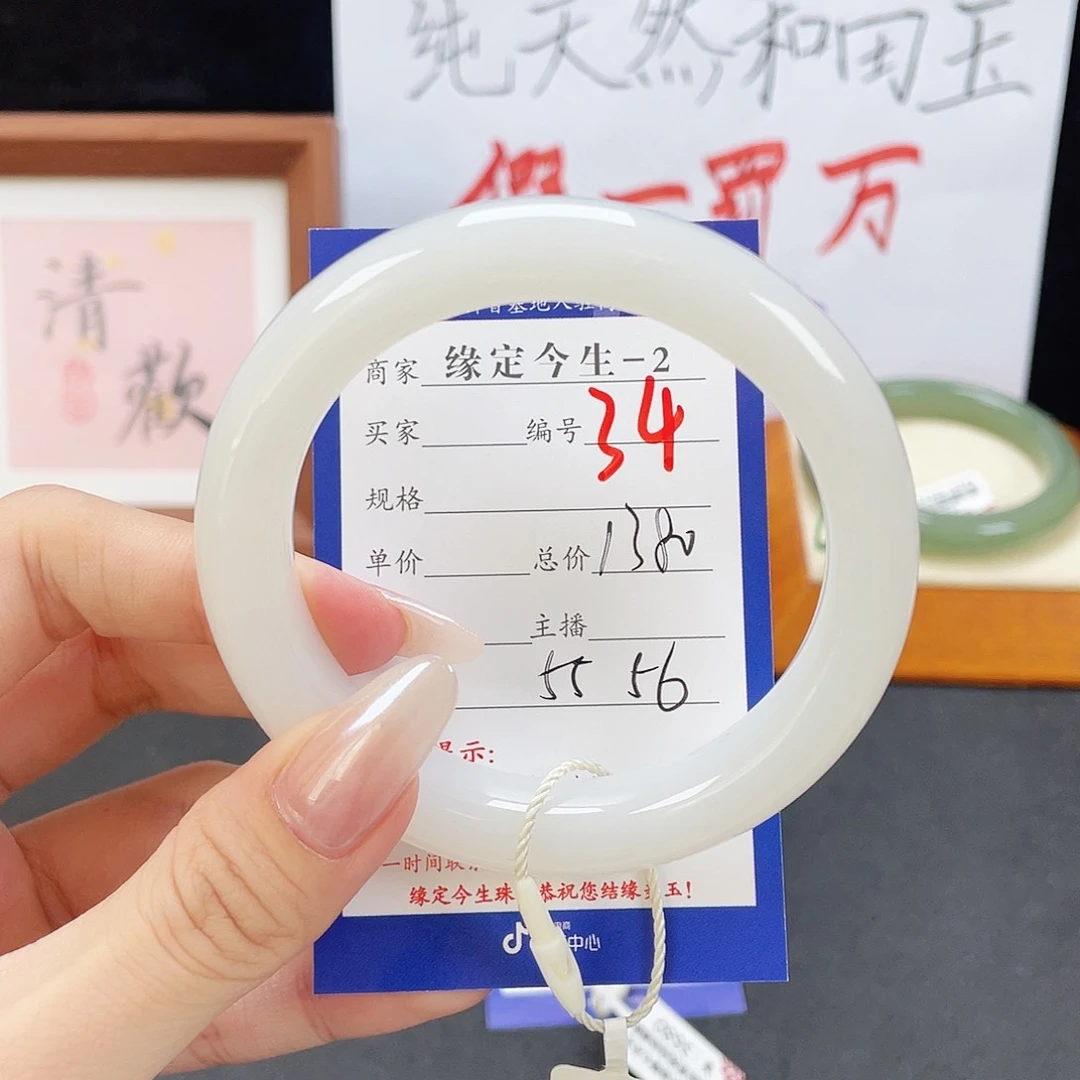 纯天然和田玉
假一罚万
清
歡
基地入驻商
商家 缘定今生-2
买家 编号 34
规格
单价 总价 1380
主播
55 56
提示:
一时间联系
缘定今生珠 恭祝您结缘 玉!
中心